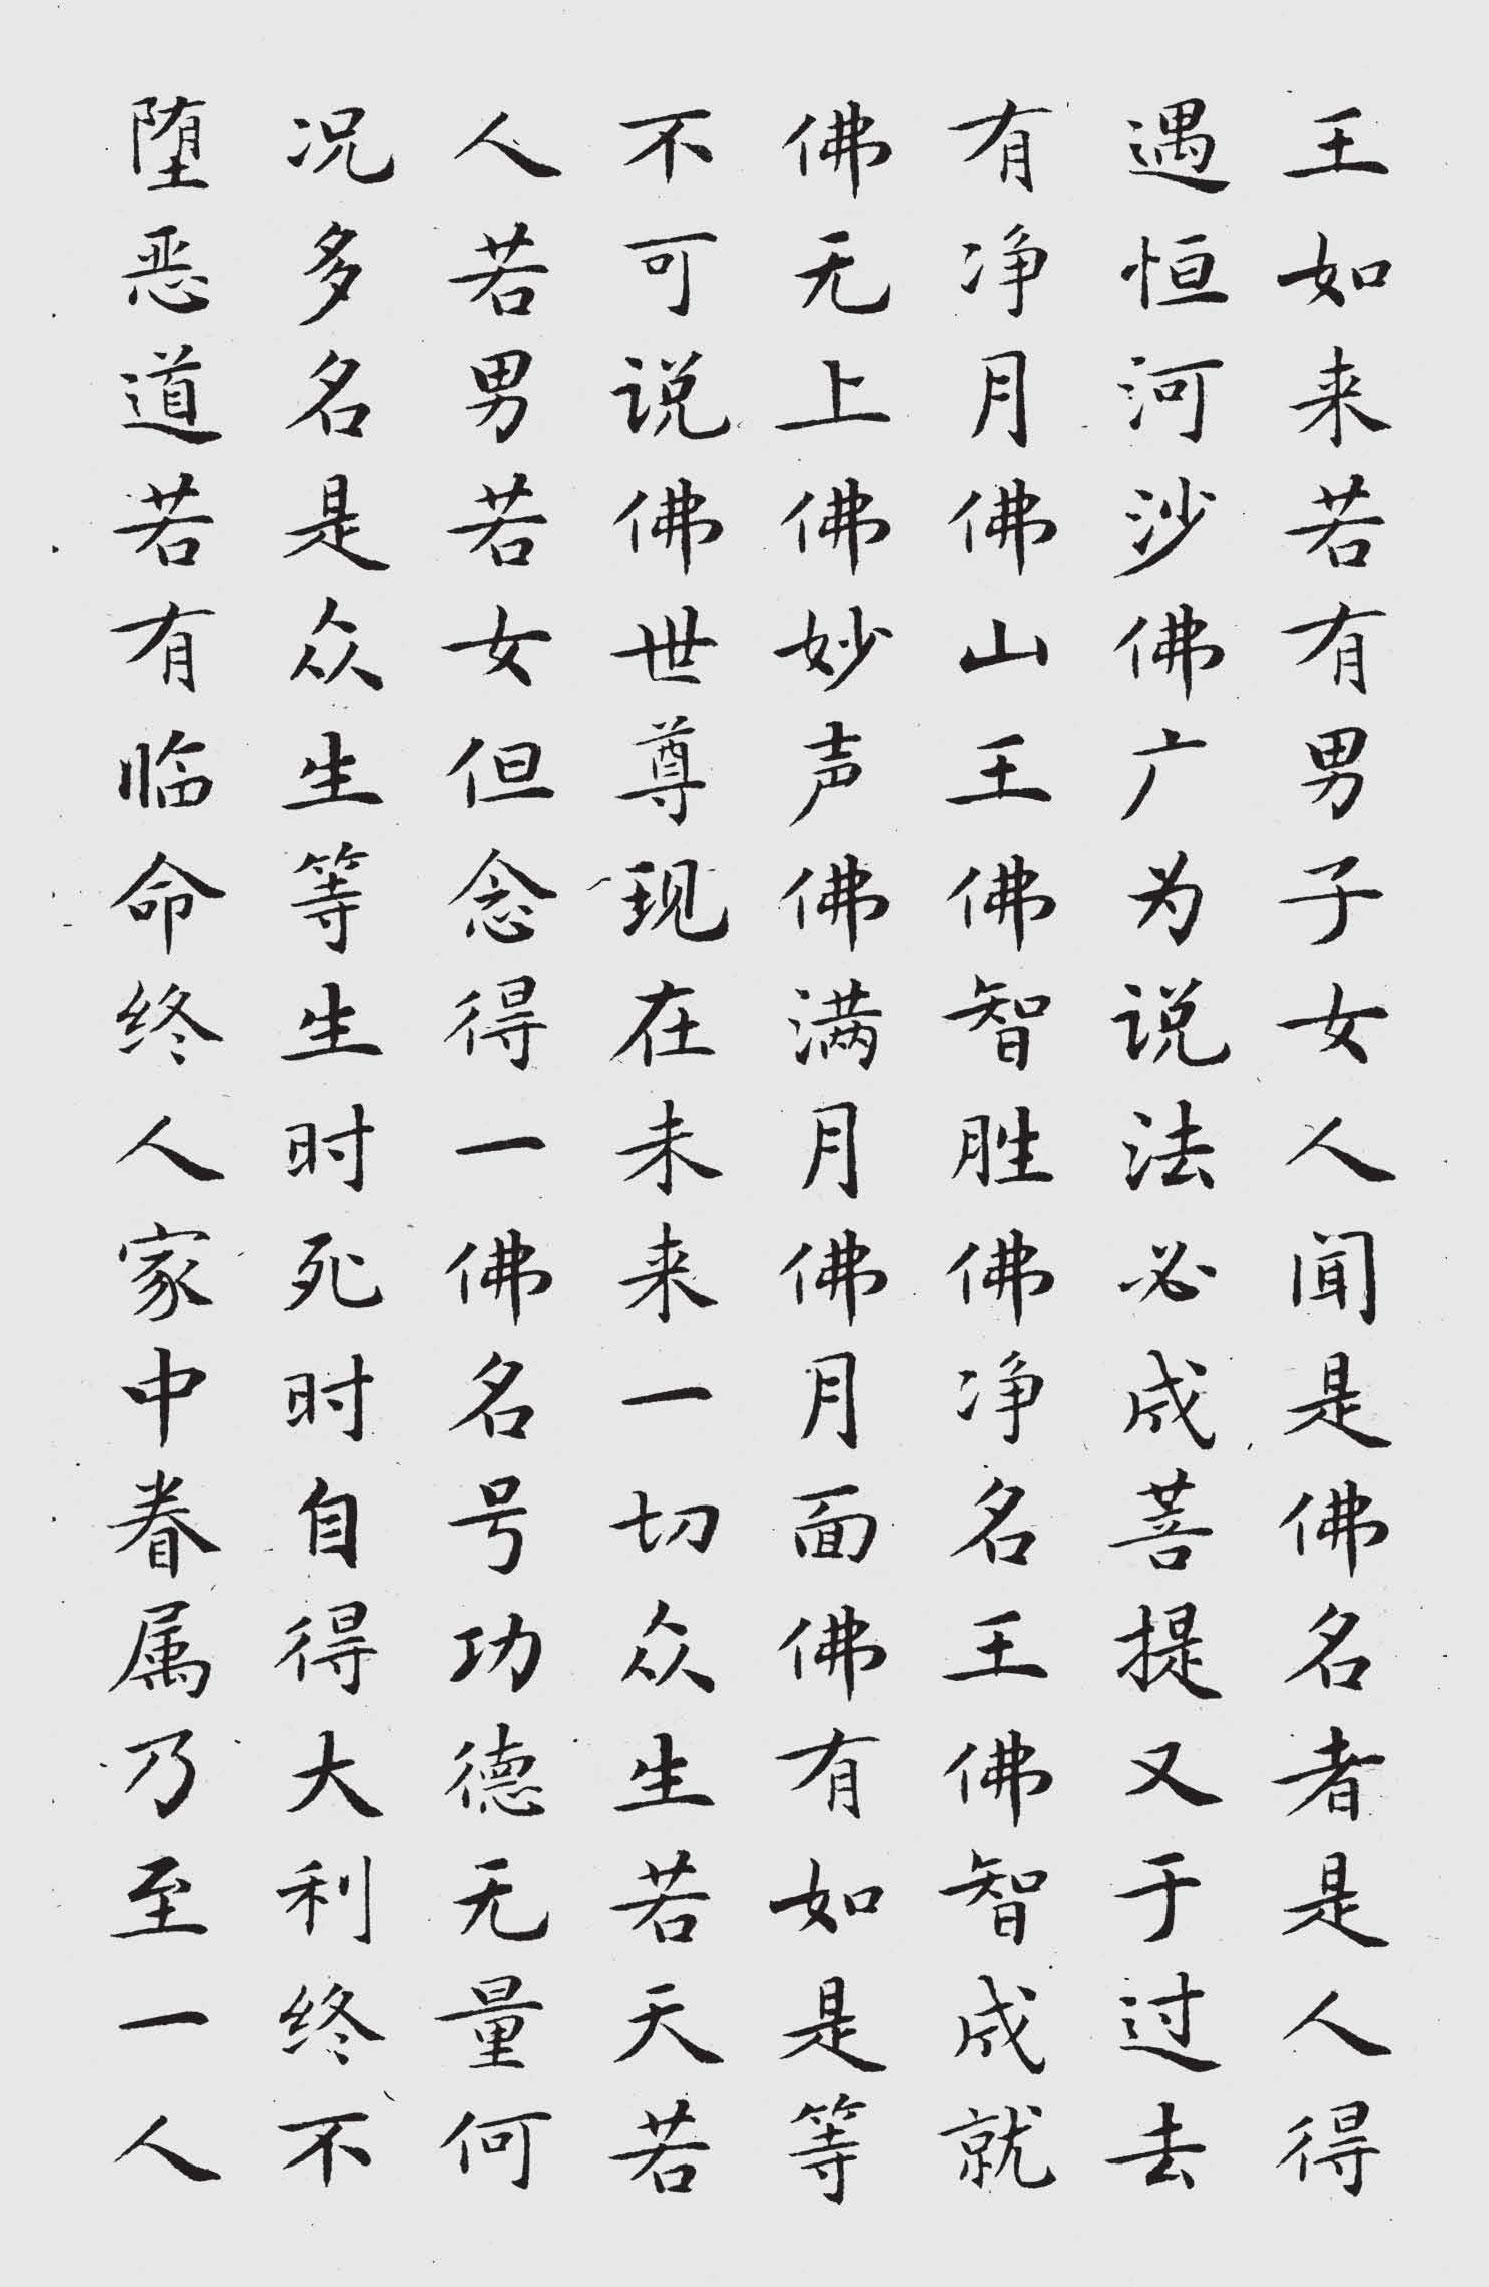 王如来若有男子女人闻是佛名者是人得
遇恒河沙佛广为说法必成菩提又于过去
有净月佛山王佛智胜佛净名王佛智成就
佛无上佛妙声佛满月佛月面佛有如是等
不可说佛世尊现在未来一切众生若天若
人若男若女但念得一佛名号功德无量何
况多名是众生等生时死时自得大利终不
堕恶道若有临命终人家中眷属乃至一人